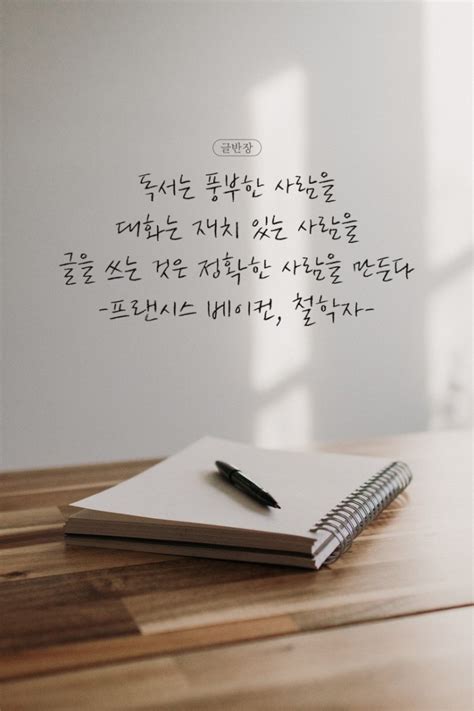 글반장
독서는 풍부한 사람을
대화는 재치 있는 사람을
글을 쓰는 것은 정확한 사람을 만든다
-프랜시스 베이컨, 철학자-